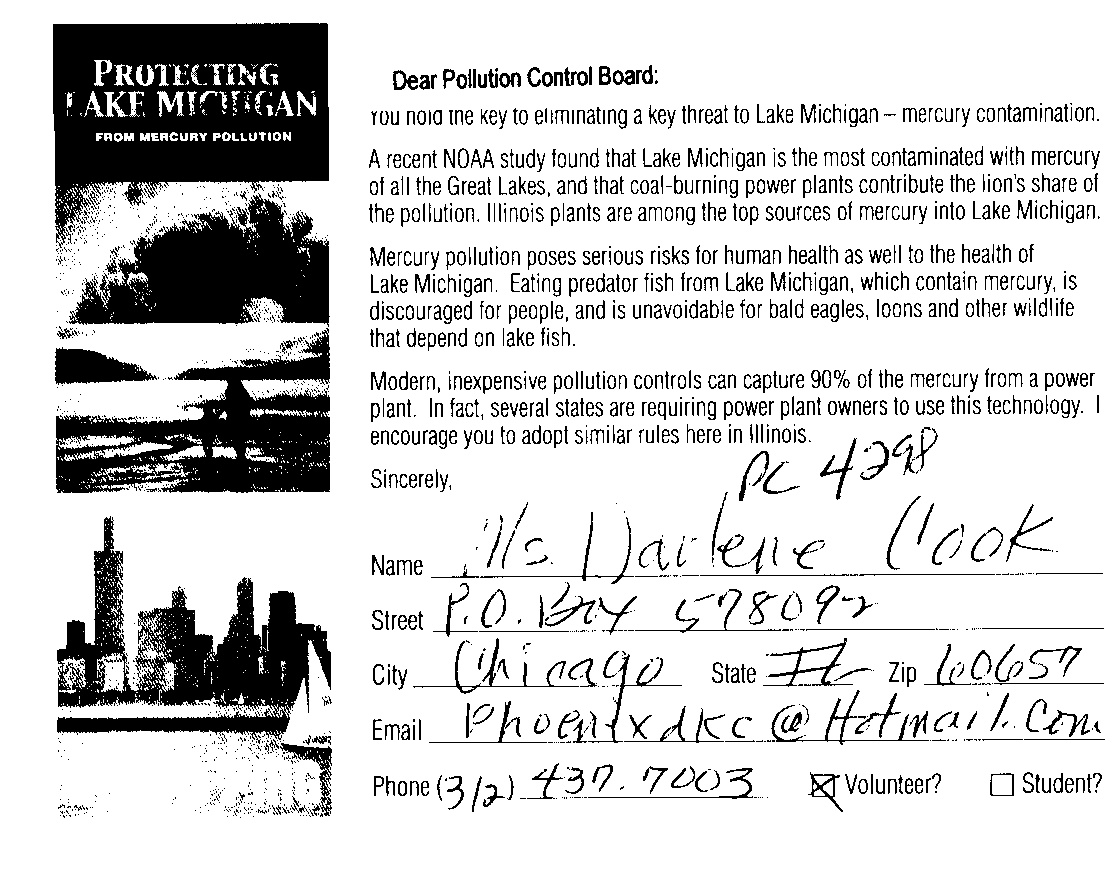 PROTECTING
LAKE MICHIGAN
FROM MERCURY POLLUTION
Dear Pollution Control Board:
You hold the key to eliminating a key threat to Lake Michigan – mercury contamination.
A recent NOAA study found that Lake Michigan is the most contaminated with mercury
of all the Great Lakes, and that coal-burning power plants contribute the lion's share of
the pollution. Illinois plants are among the top sources of mercury into Lake Michigan.
Mercury pollution poses serious risks for human health as well to the health of
Lake Michigan. Eating predator fish from Lake Michigan, which contain mercury, is
discouraged for people, and is unavoidable for bald eagles, loons and other wildlife
that depend on lake fish.
Modern, inexpensive pollution controls can capture 90% of the mercury from a power
plant. In fact, several states are requiring power plant owners to use this technology. I
encourage you to adopt similar rules here in Illinois.
Sincerely,
PC 4298
Name Ms. Darlene Cook
Street P.O. Box 578092
City Chicago State IL Zip 60657
Email Phoenixdkc@Hotmail.Com
Phone (312) 437.7003 Volunteer? Student?